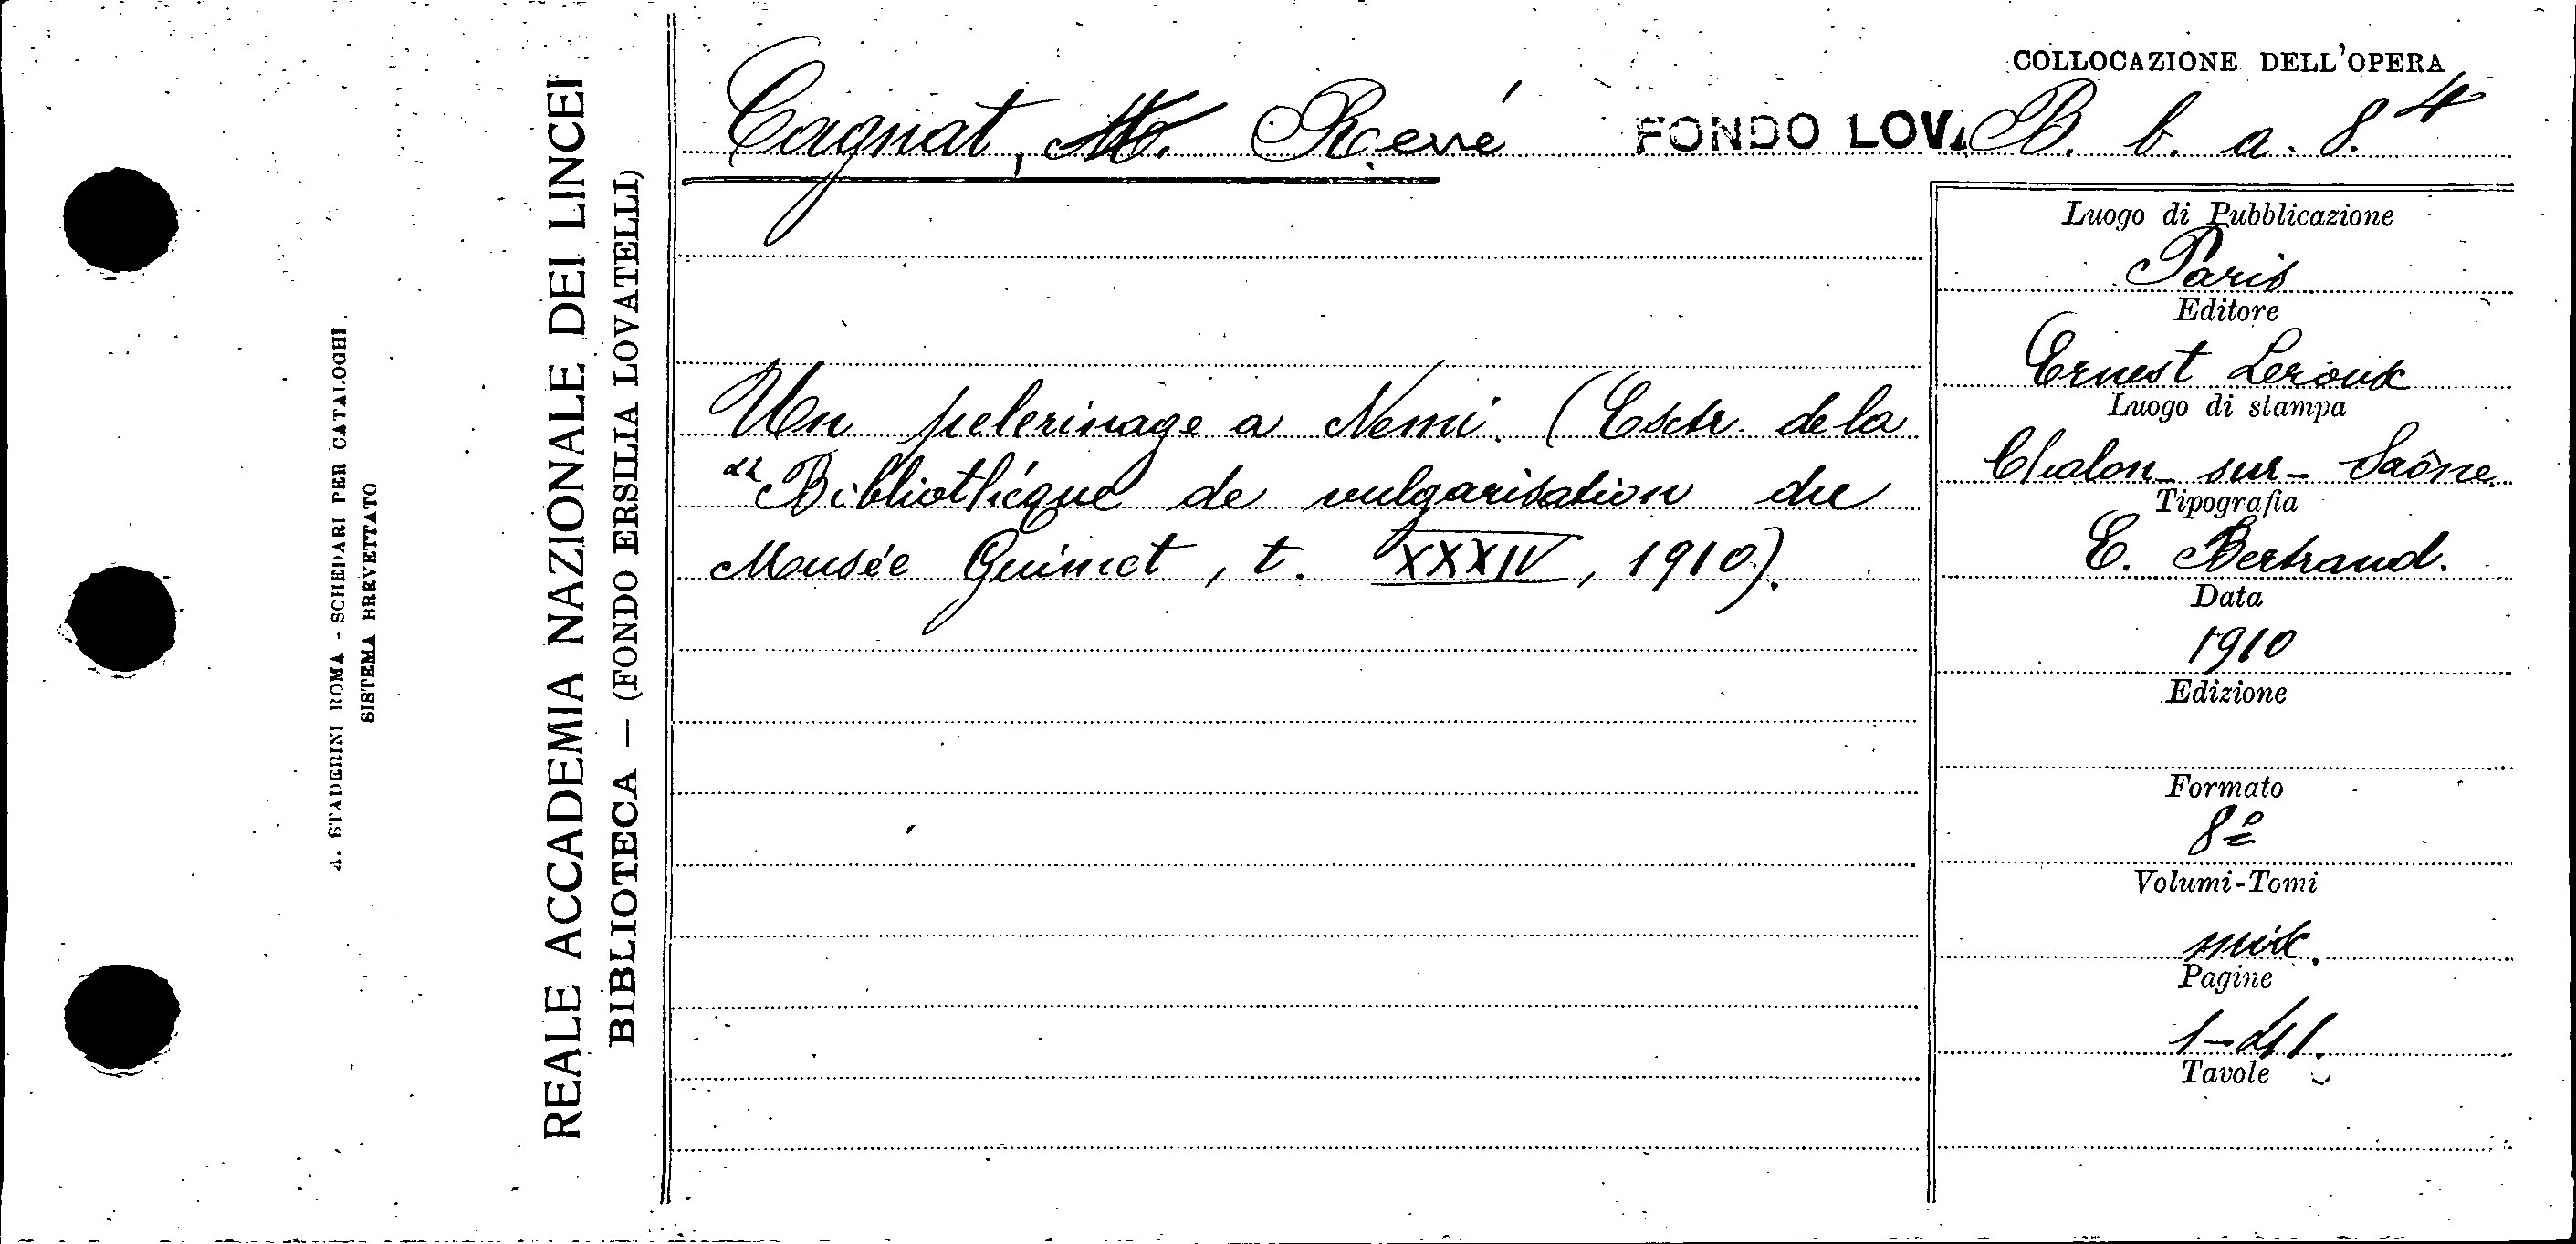 COLLOCAZIONE DELL'OPERA
Cagnat, René
FONDO LOVA
B. b. a. 8.4
Un pelerinage a Nemi. (Extr. de la
"Bibliothèque de vulgarisation du
Musée Guimet, t. XXXIV, 1910).
Luogo di Pubblicazione
Paris
Editore
Ernest Leroux
Luogo di stampa
Chalon-sur-Saône
Tipografia
E. Bertrand.
Data
1910
Edizione
Formato
8º
Volumi-Tomi
Pagine
1-41.
Tavole
REALE ACCADEMIA NAZIONALE DEI LINCEI
BIBLIOTECA — (FONDO ERSILIA LOVATELLI)
A. STADERINI ROMA - SCHEDARI PER CATALOGHI
SISTEMA BREVETTATO